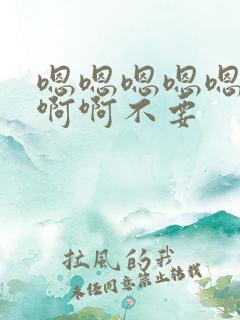 嗯嗯嗯嗯嗯
啊啊不要
拉風的我
未经同意禁止转载